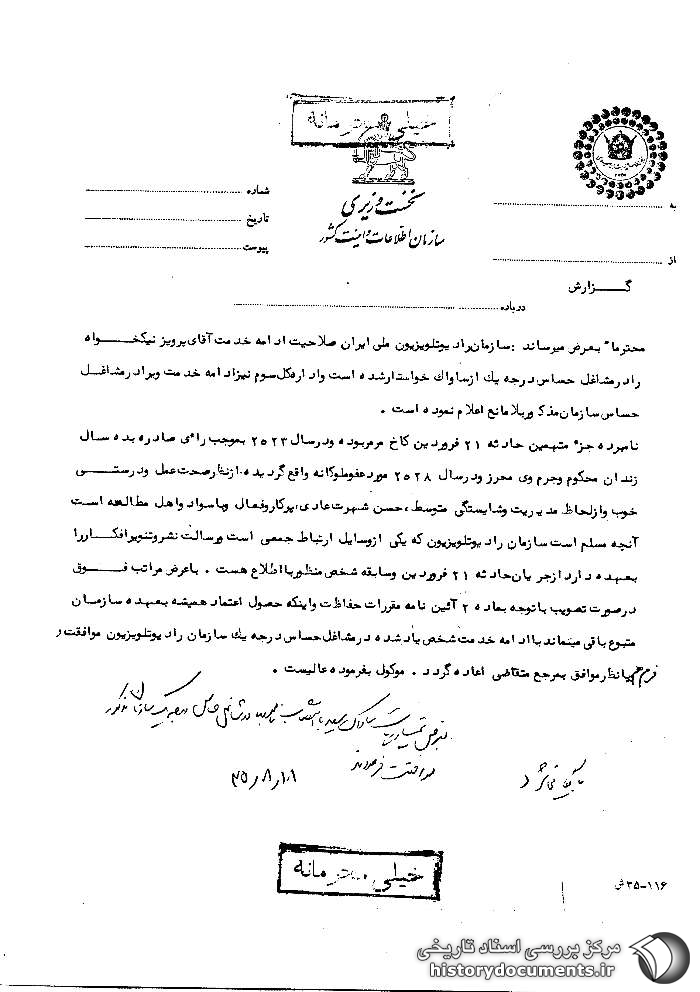 خیلی محرمانه
نخست وزیری
سازمان اطلاعات و امنیت کشور
شماره
تاریخ
پیوست
به
از
گزارش
درباره
محترما" بعرض میرساند : سازمان رادیوتلویزیون ملی ایران صلاحیت ادامه خدمت آقای پرویز نیکخواه
را در مشاغل حساس درجه یک از ساواک خواستار شده است و اداره کل سوم نیز ادامه خدمت ویرا در مشاغل
حساس سازمان مذکور بلامانع اعلام نموده است .
نامبرده جزء متهمین حادثه ۲۱ فروردین کاخ مرمر بوده و در سال ۲۵۲۳ بموجب رای صادره بده سال
زندان محکوم و جرم وی محرز و در سال ۲۵۲۸ مورد عفو ملوکانه واقع گردیده . از نظر صحت عمل و درستی
خوب و از لحاظ مدیریت و شایستگی متوسط ، حسن شهرت عادی ، پرکار و فعال و باسواد و اهل مطالعه است
آنچه مسلم است سازمان رادیوتلویزیون که یکی از وسایل ارتباط جمعی است و رسالت نشر و تنویر افکار را
بعهده دارد از جریان حادثه ۲۱ فروردین و سابقه شخص منظور با اطلاع هست . با عرض مراتب فوق
در صورت تصویب با توجه بماده ۲ آئین نامه مقررات حفاظت و اینکه حصول اعتماد همیشه بعهده سازمان
متبوع باقی میماند با ادامه خدمت شخص یاد شده در مشاغل حساس درجه یک سازمان رادیوتلویزیون موافقت و
فرم با نظر موافق بمرجع متقاضی اعاده گردد . موکول بفرموده عالیست .
ساواک رسید با انتصاب نامبرده در مشاغل حساس درجه یک سازمان مذکور
موافقت فرمودند
۳۵/۸/۱۱
خیلی محرمانه
۱۱۶-۳۵ ش
مرکز بررسی اسناد تاریخی
historydocuments.ir